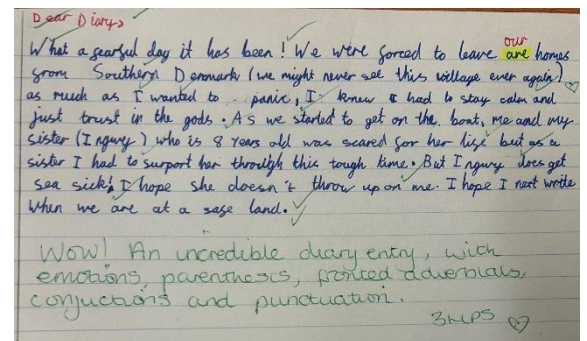 Dear Diary,
What a fearful day it has been! We were forced to leave our are homes
from Southern Denmark (we might never see this village ever again)
as much as I wanted to panic, I knew I had to stay calm and
just trust in the gods. As we started to get on the boat, me and my
sister (Ingwy) who is 8 years old was scared for her life but as a
sister I had to surport her through this tough time. But Ingwy does get
sea sick! I hope she doesn't throw up on me. I hope I next write
when we are at a safe land.
Wow! An incredible diary entry, with
emotions, parenthesis, fronted adverbials,
conjuctions and punctuation.
3HPS